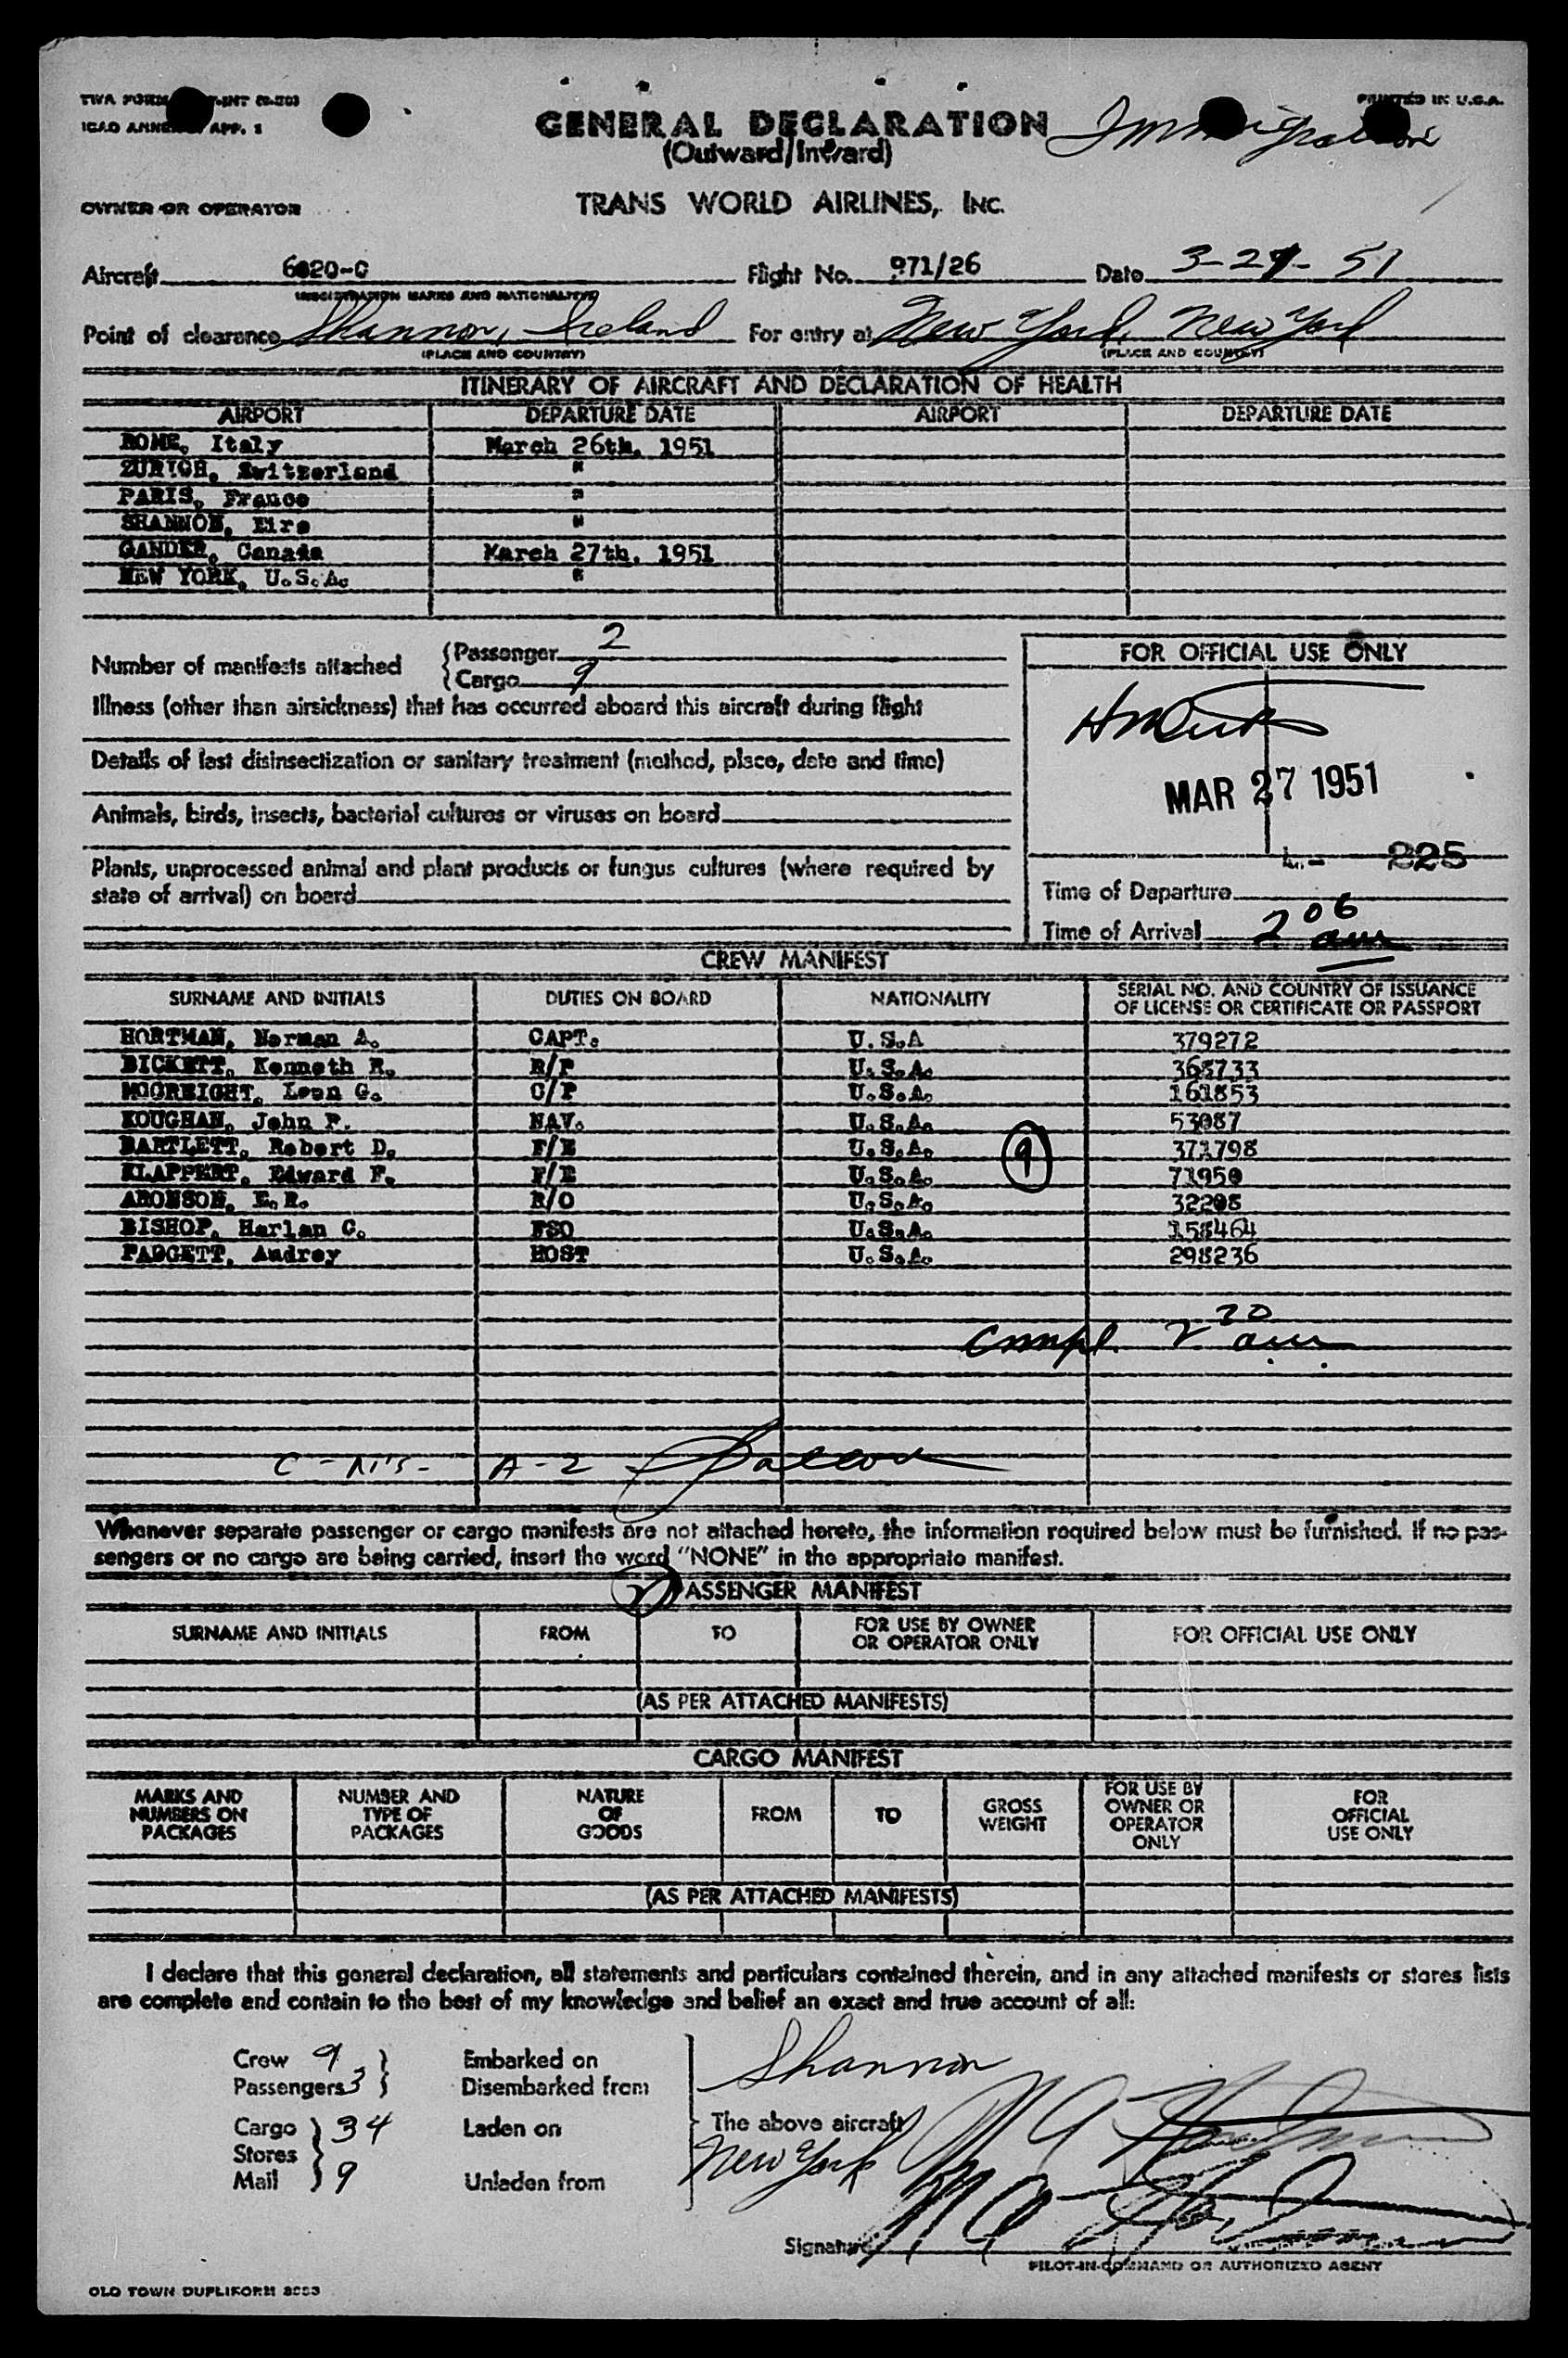 PRINTED IN U.S.A.
GENERAL DECLARATION
(Outward/Inward)
Immigration
OWNER OR OPERATOR
TRANS WORLD AIRLINES, INC.
Aircraft 6020-C Flight No. 971/26 Date 3-27-51
(REGISTRATION MARKS AND NATIONALITY)
Point of clearance Shannon, Ireland For entry at New York, New York
(PLACE AND COUNTRY) (PLACE AND COUNTRY)
ITINERARY OF AIRCRAFT AND DECLARATION OF HEALTH
AIRPORT DEPARTURE DATE AIRPORT DEPARTURE DATE
ROME, Italy March 26th, 1951
ZURICH, Switzerland "
PARIS, France "
SHANNON, Eire "
GANDER, Canada March 27th, 1951
NEW YORK, U.S.A. "
Number of manifests attached {Passenger 2
{Cargo 9
Illness (other than airsickness) that has occurred aboard this aircraft during flight
Details of last disinsectization or sanitary treatment (method, place, date and time)
Animals, birds, insects, bacterial cultures or viruses on board
Plants, unprocessed animal and plant products or fungus cultures (where required by
state of arrival) on board
FOR OFFICIAL USE ONLY
MAR 27 1951
825
Time of Departure
Time of Arrival 2 06 am
CREW MANIFEST
SURNAME AND INITIALS DUTIES ON BOARD NATIONALITY SERIAL NO. AND COUNTRY OF ISSUANCE
OF LICENSE OR CERTIFICATE OR PASSPORT
HORTMAN, Norman A. CAPT. U.S.A 379272
BICKETT, Kenneth R. R/P U.S.A. 368733
MCCREIGHT, Leon G. C/P U.S.A. 161853
KOUGHAN, John P. NAV. U.S.A. 53087
BARTLETT, Robert D. F/E U.S.A. 371798
KLAPPERT, Edward F. F/E U.S.A. 71950
9
ARONSON, E.R. R/O U.S.A. 32208
BISHOP, Harlan C. FSO U.S.A. 158464
PADGETT, Audrey HOST U.S.A. 298236
Compl. 2 20 am
A-2
Whenever separate passenger or cargo manifests are not attached hereto, the information required below must be furnished. If no pas-
sengers or no cargo are being carried, insert the word "NONE" in the appropriate manifest.
PASSENGER MANIFEST
SURNAME AND INITIALS FROM TO FOR USE BY OWNER
OR OPERATOR ONLY FOR OFFICIAL USE ONLY
(AS PER ATTACHED MANIFESTS)
CARGO MANIFEST
MARKS AND
NUMBERS ON
PACKAGES NUMBER AND
TYPE OF
PACKAGES NATURE
OF
GOODS FROM TO GROSS
WEIGHT FOR USE BY
OWNER OR
OPERATOR
ONLY FOR
OFFICIAL
USE ONLY
(AS PER ATTACHED MANIFESTS)
I declare that this general declaration, all statements and particulars contained therein, and in any attached manifests or stores lists
are complete and contain to the best of my knowledge and belief an exact and true account of all:
Crew 9 } Embarked on Shannon
Passengers 3 } Disembarked from
Cargo } 34 Laden on The above aircraft
Stores
Mail } 9 Unladen from New York
Signature
PILOT-IN-COMMAND OR AUTHORIZED AGENT
OLD TOWN DUPLIFORM